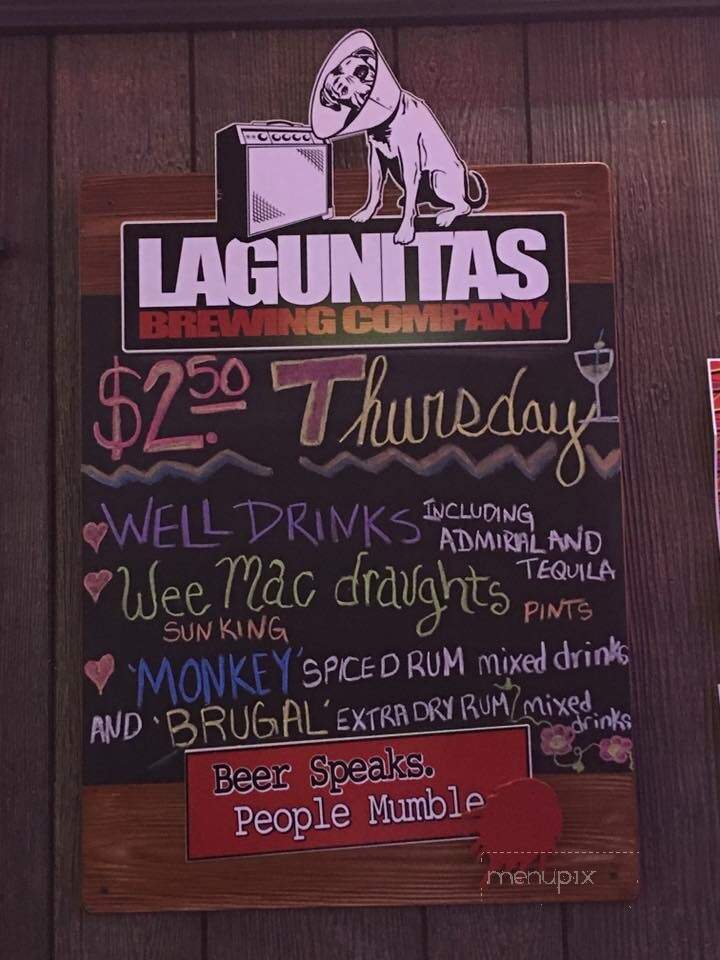 LAGUNITAS
BREWING COMPANY
$2.50 Thursday
WELL DRINKS INCLUDING
ADMIRAL AND
TEQUILA
Wee Mac draughts PINTS
SUN KING
'MONKEY' SPICED RUM mixed drinks
AND 'BRUGAL' EXTRA DRY RUM mixed
drinks
Beer Speaks.
People Mumble
menupix